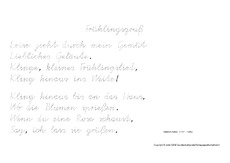 Frühlingsgruß
Leise zieht durch mein Gemüt
Liebliches Geläute.
Klinge, kleines Frühlingslied,
Kling hinaus ins Weite!
Kling hinaus bis an das Haus,
Wo die Blumen sprießen.
Wenn du eine Rose schaust,
Sag, ich lass sie grüßen.